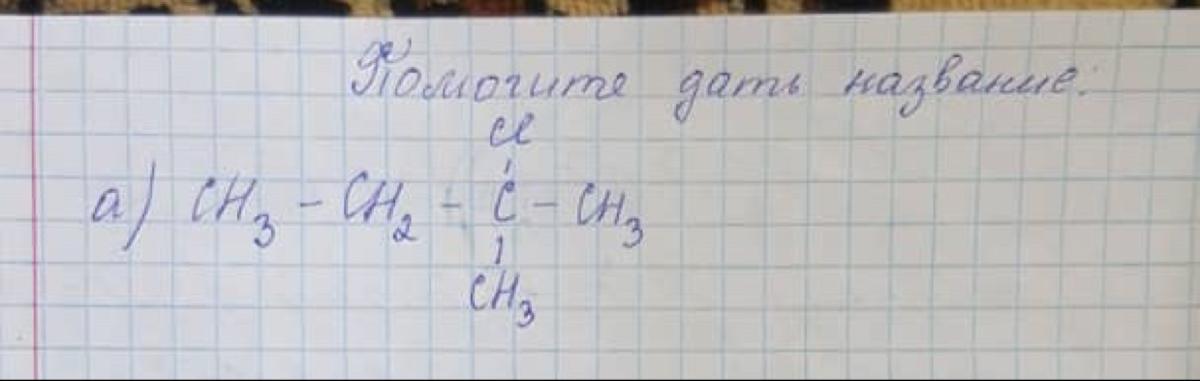 Помогите дать название:
Cl
а) CH₃ – CH₂ – C – CH₃
CH₃